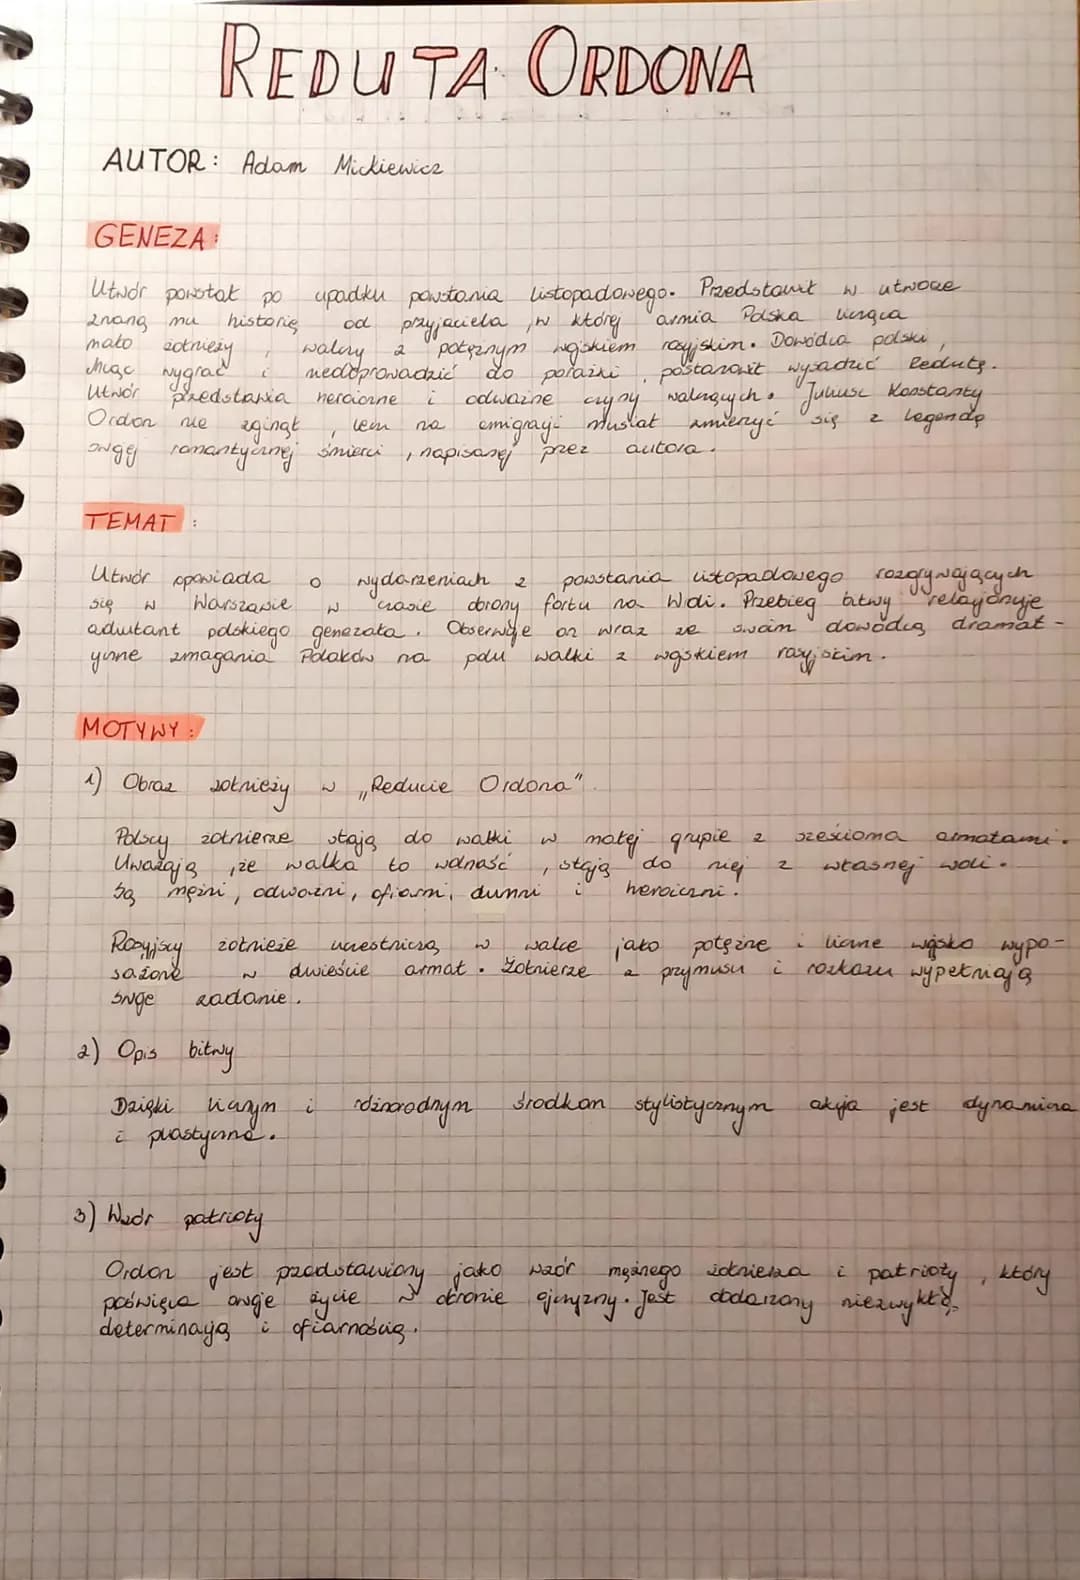 REDUTA ORDONA
AUTOR: Adam Mickiewicz
GENEZA:
Utwór powstał po upadku powstania listopadowego. Przedstawił w utworze
znaną mu historię od przyjaciela, w której armia Polska licząca
mało żołnieży, walczy z potężnym wojskiem rosyjskim. Dowódca polski,
chcąc wygrać i niedoprowadzić do porażki, postanowił wysadzić Redutę.
Utwór przedstawia heroiczne i odważne czyny walczących. Juliusz Konstanty
Ordon nie zginął, lecz na emigracji musiał zmierzyć się z legendą
swojej romantycznej śmierci, napisanej przez autora.
TEMAT:
Utwór opowiada o wydarzeniach z powstania listopadowego rozgrywających
się w Warszawie w czasie obrony fortu na Woli. Przebieg bitwy relacjonuje
adiutant polskiego generała. Obserwuje on wraz ze swoim dowódcą dramat-
yczne zmagania Polaków na polu walki z wojskiem rosyjskim.
MOTYWY:
1) Obraz żołnieży w „Reducie Ordona".
Polscy żołnierze stają do walki w małej grupie z sześcioma armatami.
Uważają, że walka to wolność, stają do niej z własnej woli.
Są mężni, odważni, ofiarni, dumni i heroiczni.
Rosyjscy żołnieże uczestniczą w walce jako potężne i liczne wojsko wypo-
sażone w dwieście armat. Żołnierze z przymusu i rozkazu wypełniają
swoje zadanie.
2) Opis bitwy
Dzięki licznym i różnorodnym środkom stylistycznym akcja jest dynamiczna
i plastyczna.
3) Wzór patrioty
Ordon jest przedstawiony jako wzór mężnego żołnierza i patrioty, który
poświęca swoje życie w obronie ojczyzny. Jest obdarzony niezwykłą
determinacją i ofiarnością.